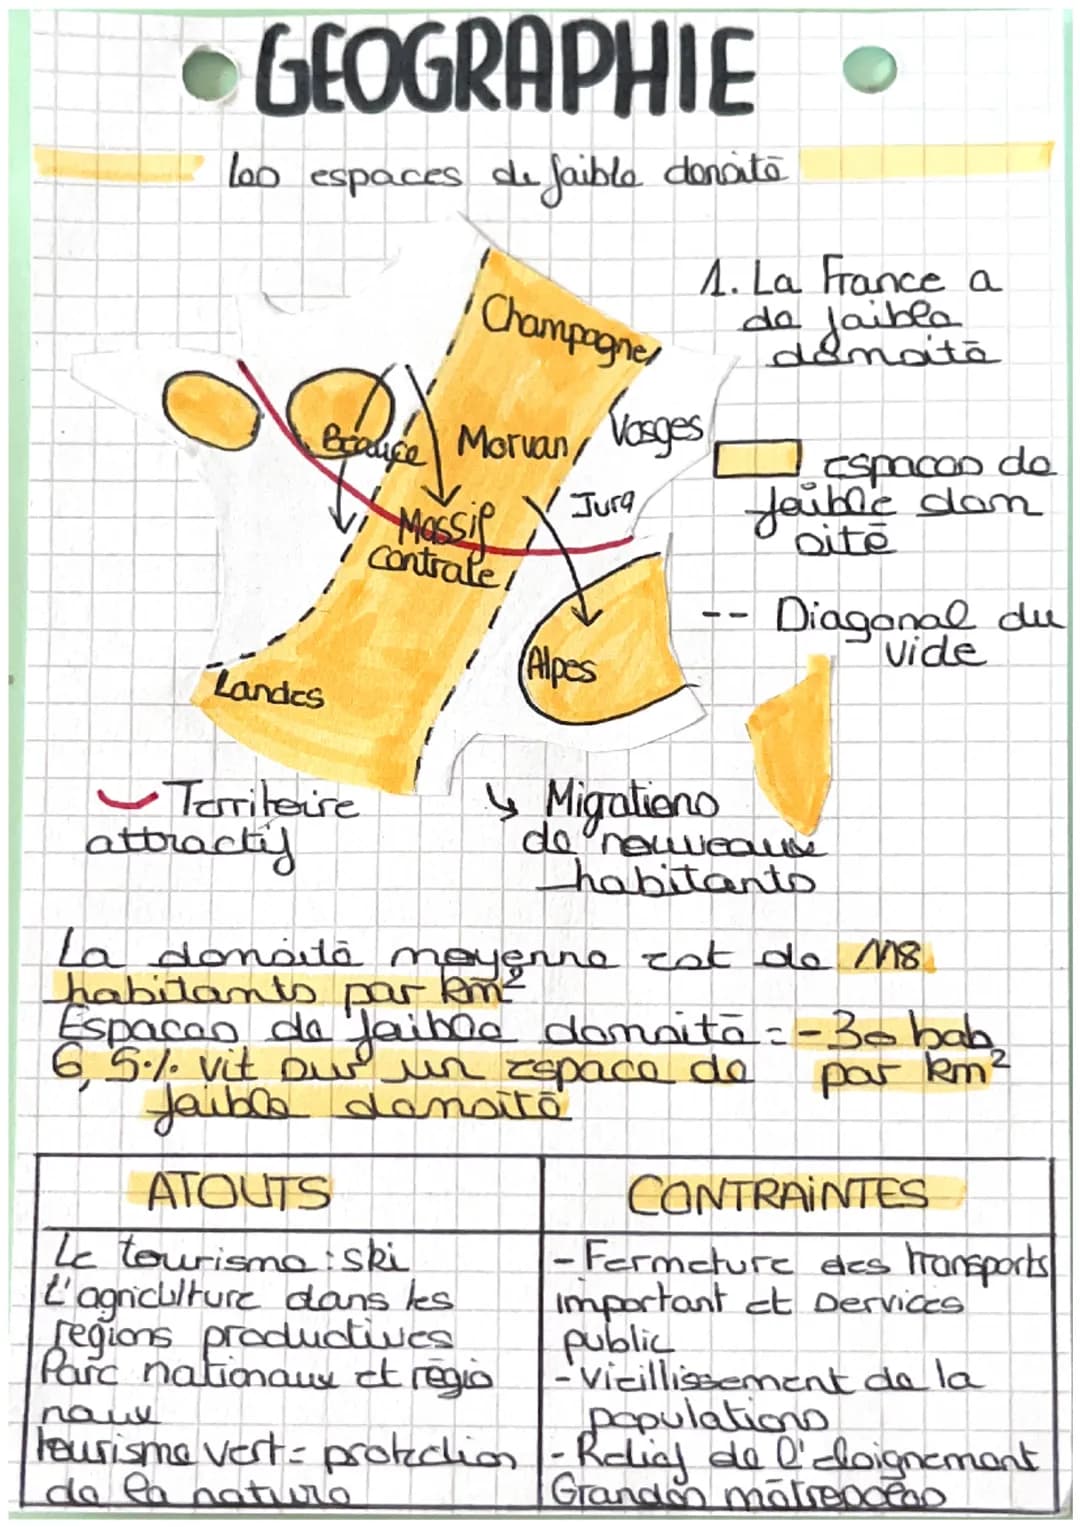 GEOGRAPHIE
Les espaces de faible densité
Champagne
1. La France a
de faible
densité
Beauce
Morvan
Vosges
espaces de
faible den
sité
Massif
centrale
Jura
-- Diagonal du
vide
Alpes
Landes
Territoire
attractif
Migrations
de nouveaux
habitants
La densité moyenne est de 118
habitants par km²
Espaces de faible densité = -30 hab
par km²
6,5% vit sur un espace de
faible densité
ATOUTS
Le tourisme : ski
L'agriculture dans les
regions productives
Parc nationaux et régio
naux
tourisme vert = protection
de la nature
CONTRAINTES
- Fermeture des transports
important et services
public
- Vieillissement de la
populations
- Relief de l'éloignement
Grandes métropoles